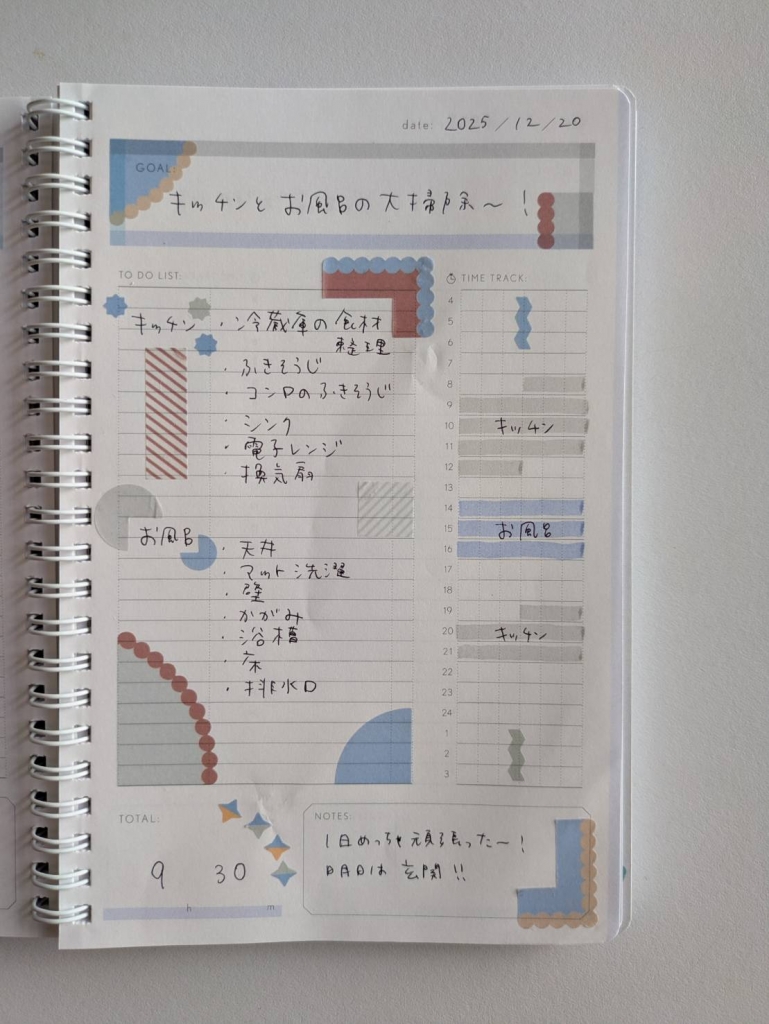 date: 2025/12/20
GOAL:
キッチンとお風呂の大掃除～!
TO DO LIST:
キッチン ・冷蔵庫の食材
整理
・ふきそうじ
・コンロのふきそうじ
・シンク
・電子レンジ
・換気扇
お風呂
・天井
・マット洗濯
・壁
・かがみ
・浴槽
・床
・排水口
TIME TRACK:
4
5
6
7
8
9
10 キッチン
11
12
13
14
15 お風呂
16
17
18
19
20 キッチン
21
22
23
24
1
2
3
TOTAL:
9 30
h m
NOTES:
1日めっちゃ頑張った～!
明日は玄関!!